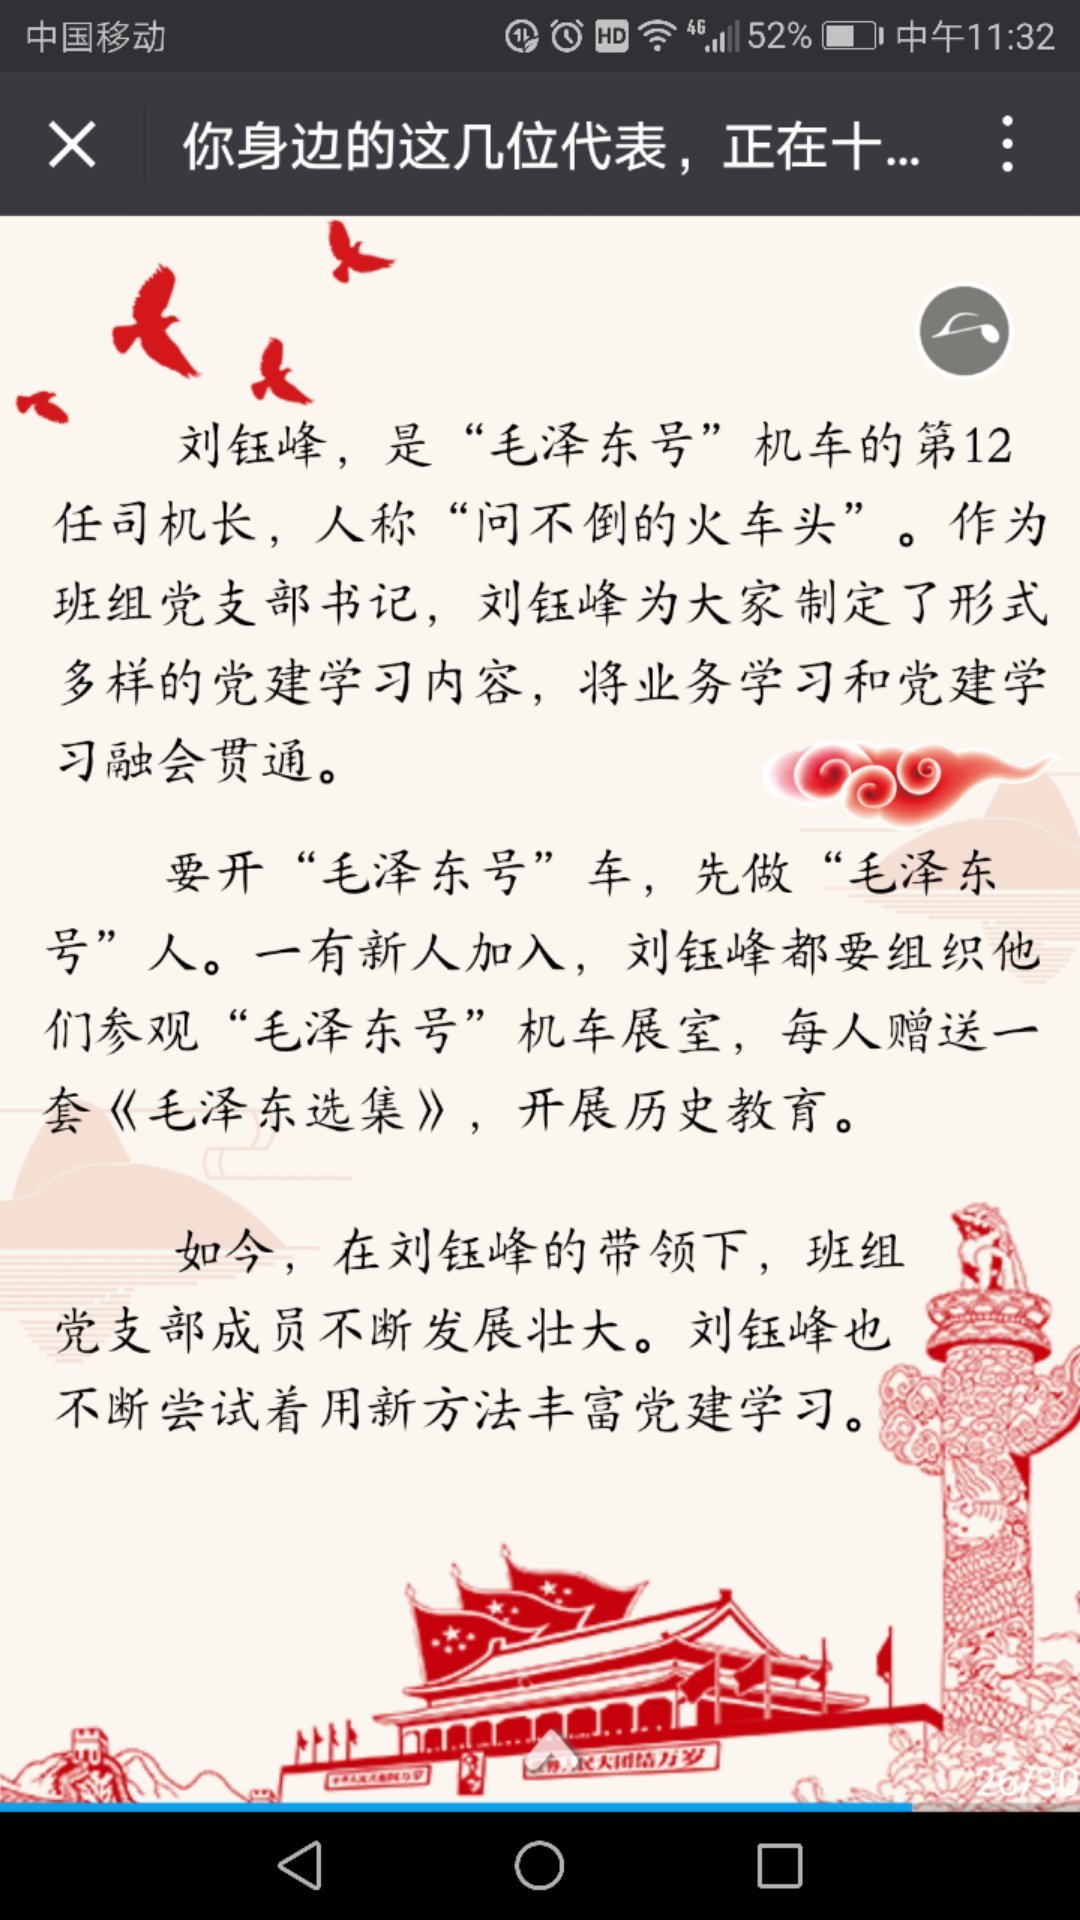 中国移动
HD 4G 52% 中午11:32
你身边的这几位代表，正在十...
刘钰峰，是“毛泽东号”机车的第12
任司机长，人称“问不倒的火车头”。作为
班组党支部书记，刘钰峰为大家制定了形式
多样的党建学习内容，将业务学习和党建学
习融会贯通。
要开“毛泽东号”车，先做“毛泽东
号”人。一有新人加入，刘钰峰都要组织他
们参观“毛泽东号”机车展室，每人赠送一
套《毛泽东选集》，开展历史教育。
如今，在刘钰峰的带领下，班组
党支部成员不断发展壮大。刘钰峰也
不断尝试着用新方法丰富党建学习。
民大团结万岁
26/30